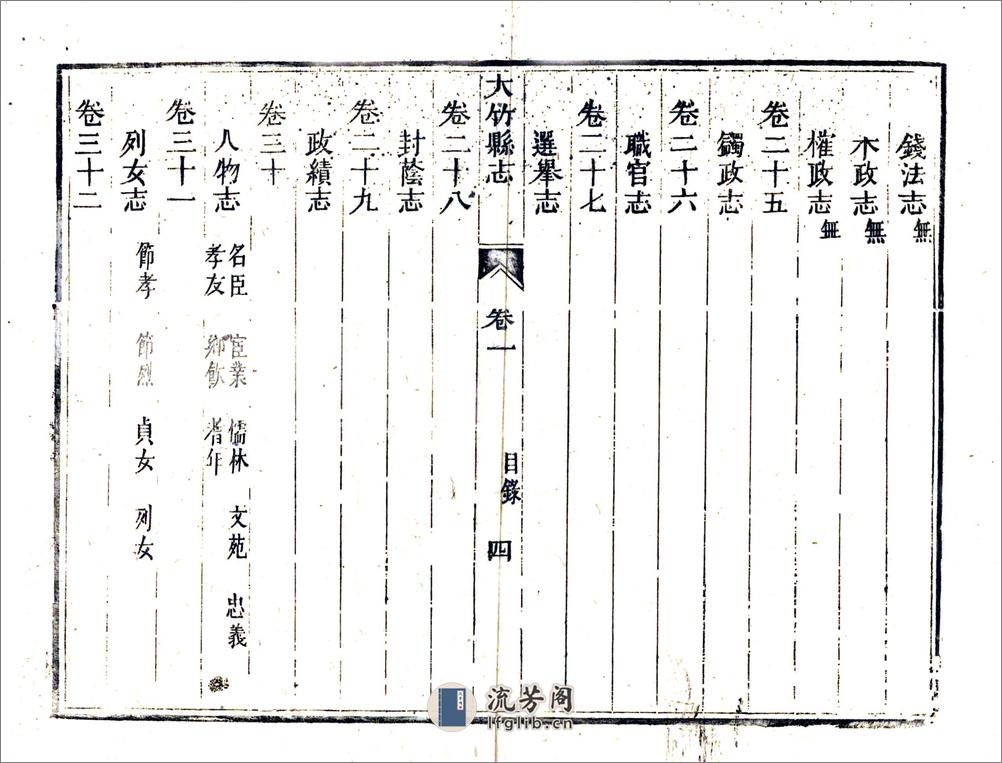 錢法志無
木政志無
榷政志無
卷二十五
蠲政志
卷二十六
職官志
卷二十七
選舉志
大竹縣志 卷一 目錄 四
卷二十八
封蔭志
卷二十九
政績志
卷三十
人物志 名臣 宦業 儒林 文苑 忠義
孝友 鄉飲 耆年
卷三十一
列女志 節孝 節烈 貞女 列女
卷三十二
流芳阁
lfglib.cn